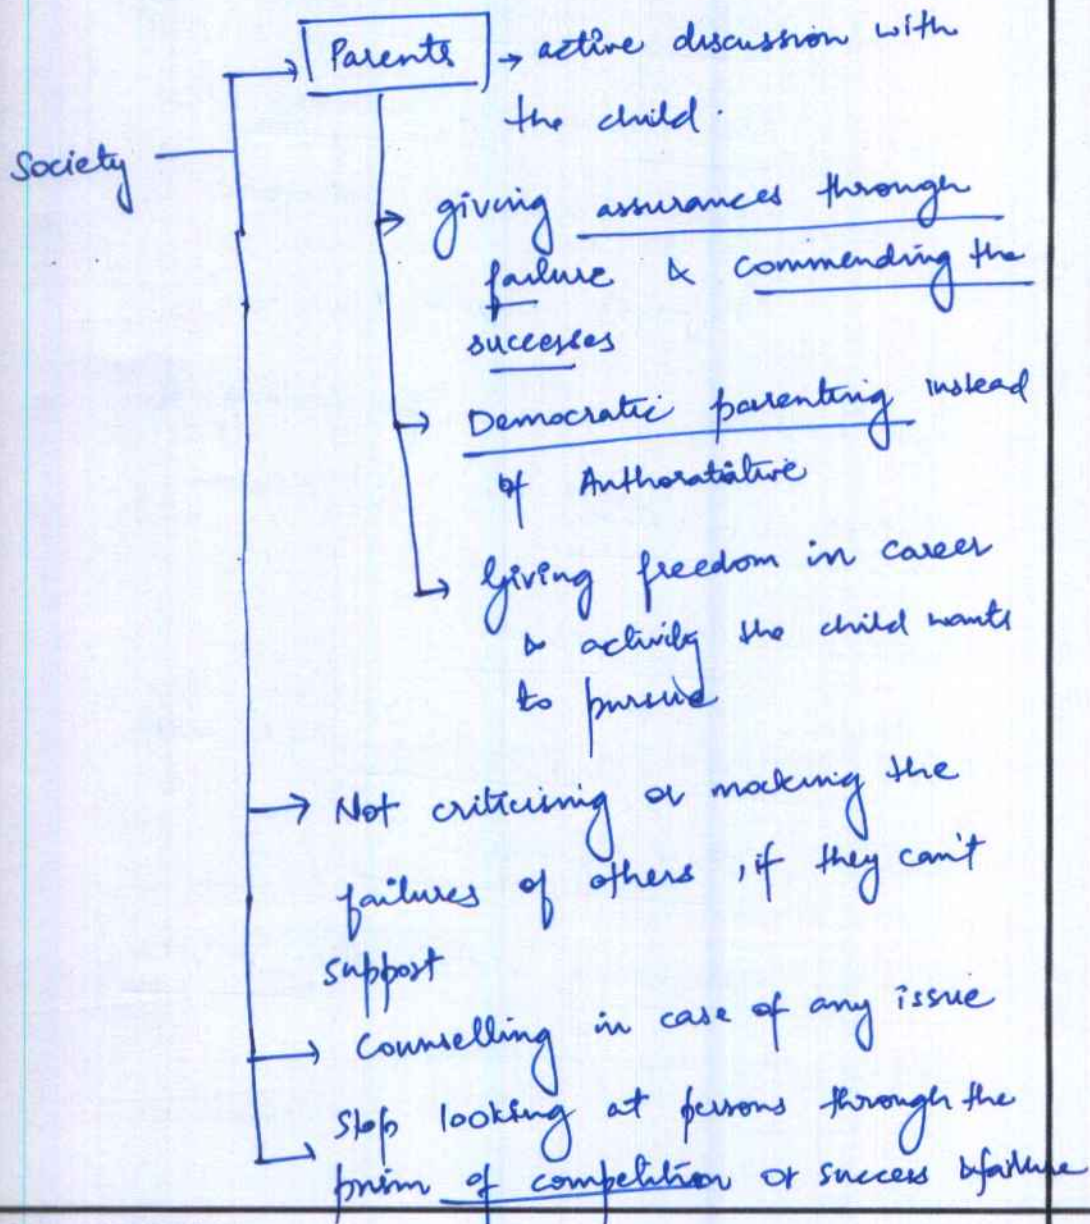 Parents → active discussion with
the child.
Society
giving assurances through
failure & commending the
successes
Democratic parenting instead
of Anthoratative
Giving freedom in career
& activity the child wants
to pursue
Not criticising or mocking the
failures of others, if they can't
support
Counselling in case of any issue
Stop looking at persons through the
prism of competition or success & failure